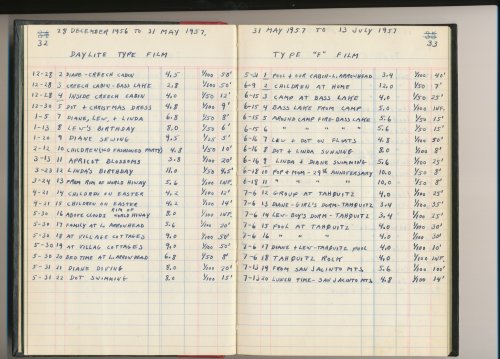 28 DECEMBER 1956 TO 31 MAY 1957
32
DAYLITE TYPE FILM
12-28 2 DIANE-CREECH CABIN 4.5 1/100 50'
12-28 3 CREECH CABIN-BASS LAKE 2.8 1/100 50'
12-28 4 INSIDE CREECH CABIN 4.0 1/50 12'
12-30 5 DOT + CHRISTMAS DRESS 4.8 1/100 9'
1-5 7 DIANE, LEW, + LINDA 6.8 1/50 8'
1-13 8 LEW'S BIRTHDAY 8.0 1/50 6'
1-20 9 DIANE SEWING 4.5 1/25 5'
2-12 10 CHILDREN (OLD FASHIONED PARTY) 4.8 1/50 10'
3-13 11 APRICOT BLOSSOMS 3.8 1/100 20'
3-23 12 LINDA'S BIRTHDAY 11.0 1/50 4.5'
3-24 13 FROM RIM OF WORLD HIWAY 5.6 1/100 INF.
4-21 14 CHILDREN ON EASTER 4.2 1/100 12'
4-21 15 CHILDREN ON EASTER 4.2 1/100 14'
5-30 16 ABOVE CLOUDS RIM OF WORLD HIWAY 8.0 1/100 INF.
5-30 17 FAMILY AT L. ARROWHEAD 5.6 1/100 20'
5-30 18 AT VILLAGE COTTAGES 4.0 1/100 50'
5-30 19 AT VILLAG COTTAGES 9.0 1/100 50'
5-30 20 BED TIME AT L. ARROWHEAD 6.8 1/50 8'
5-31 21 DIANE DIVING 8.0 1/100 20'
5-31 22 DOT SWIMMING 8.0 1/100 15'
31 MAY 1957 TO 13 JULY 1957
33
TYPE "F" FILM
5-31 1 POOL + OUR CABIN-L. ARROWHEAD 3.4 1/100 40'
6-9 2 CHILDREN AT HOME 12.0 1/50 7'
6-15 3 CAMP AT BASS LAKE 4.0 1/50 25'
6-15 4 BASS LAKE FROM CAMP 5.0 1/100 INF.
6-15 5 AROUND CAMP FIRE-BASS LAKE 5.6 1/50 15'
6-15 6 " " " " " 5.6 1/50 15'
6-16 7 LEW + DOT ON FLOATS 4.8 1/100 50'
6-16 8 DOT + LINDA SUNNING 8.0 1/100 8'
6-16 9 LINDA + DIANE SWIMMING 5.6 1/100 25'
6-18 10 POP + MOM-29th ANNIVERSARY 10.0 1/50 8'
6-18 11 " " " " 10.0 1/50 8'
7-6 12 GROUP AT TAHQUITZ 4.0 1/100 25'
7-6 13 DIANE-GIRL'S DORM-TAHQUITZ 3.4 1/100 35'
7-6 14 LEW-BOY'S DORM-TAHQUITZ 3.4 1/100 25'
7-6 15 POOL AT TAHQUITZ 4.0 1/100 30'
7-6 16 " " " 4.0 1/100 30'
7-6 17 DIANE + LEW-TAHQUITZ POOL 4.0 1/100 10'
7-6 18 TAHQUITZ ROCK 4.0 1/100 INF.
7-13 19 FROM SAN JACINTO MTS. 5.6 1/100 100'
7-13 20 LUNCH TIME-SAN JACINTO MTS 4.8 1/100 14'